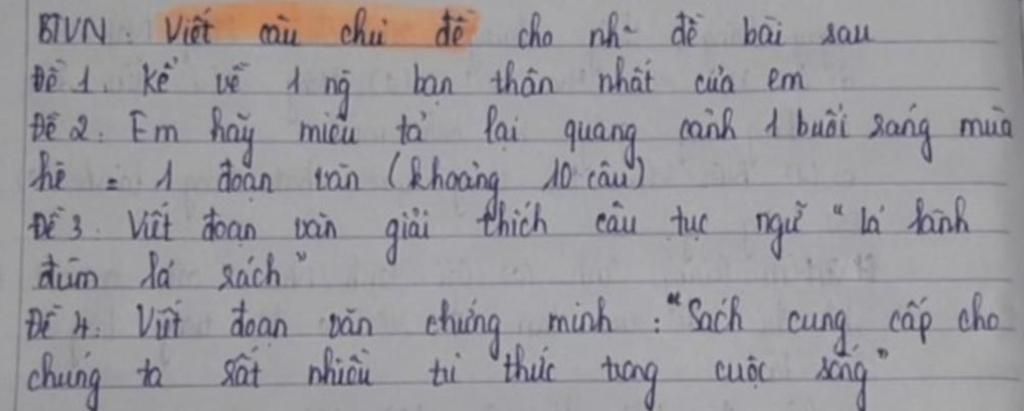 BTVN: Viết câu chủ đề cho nh~ đề bài sau
Đề 1. Kể về 1 ng bạn thân nhất của em
Đề 2: Em hãy miêu tả lại quang cảnh 1 buổi sáng mùa
hè = 1 đoạn văn (khoảng 10 câu)
Đề 3. Viết đoạn văn giải thích câu tục ngữ "lá lành
đùm lá rách"
Đề 4: Viết đoạn văn chứng minh: "Sách cung cấp cho
chúng ta rất nhiều tri thức trong cuộc sống"